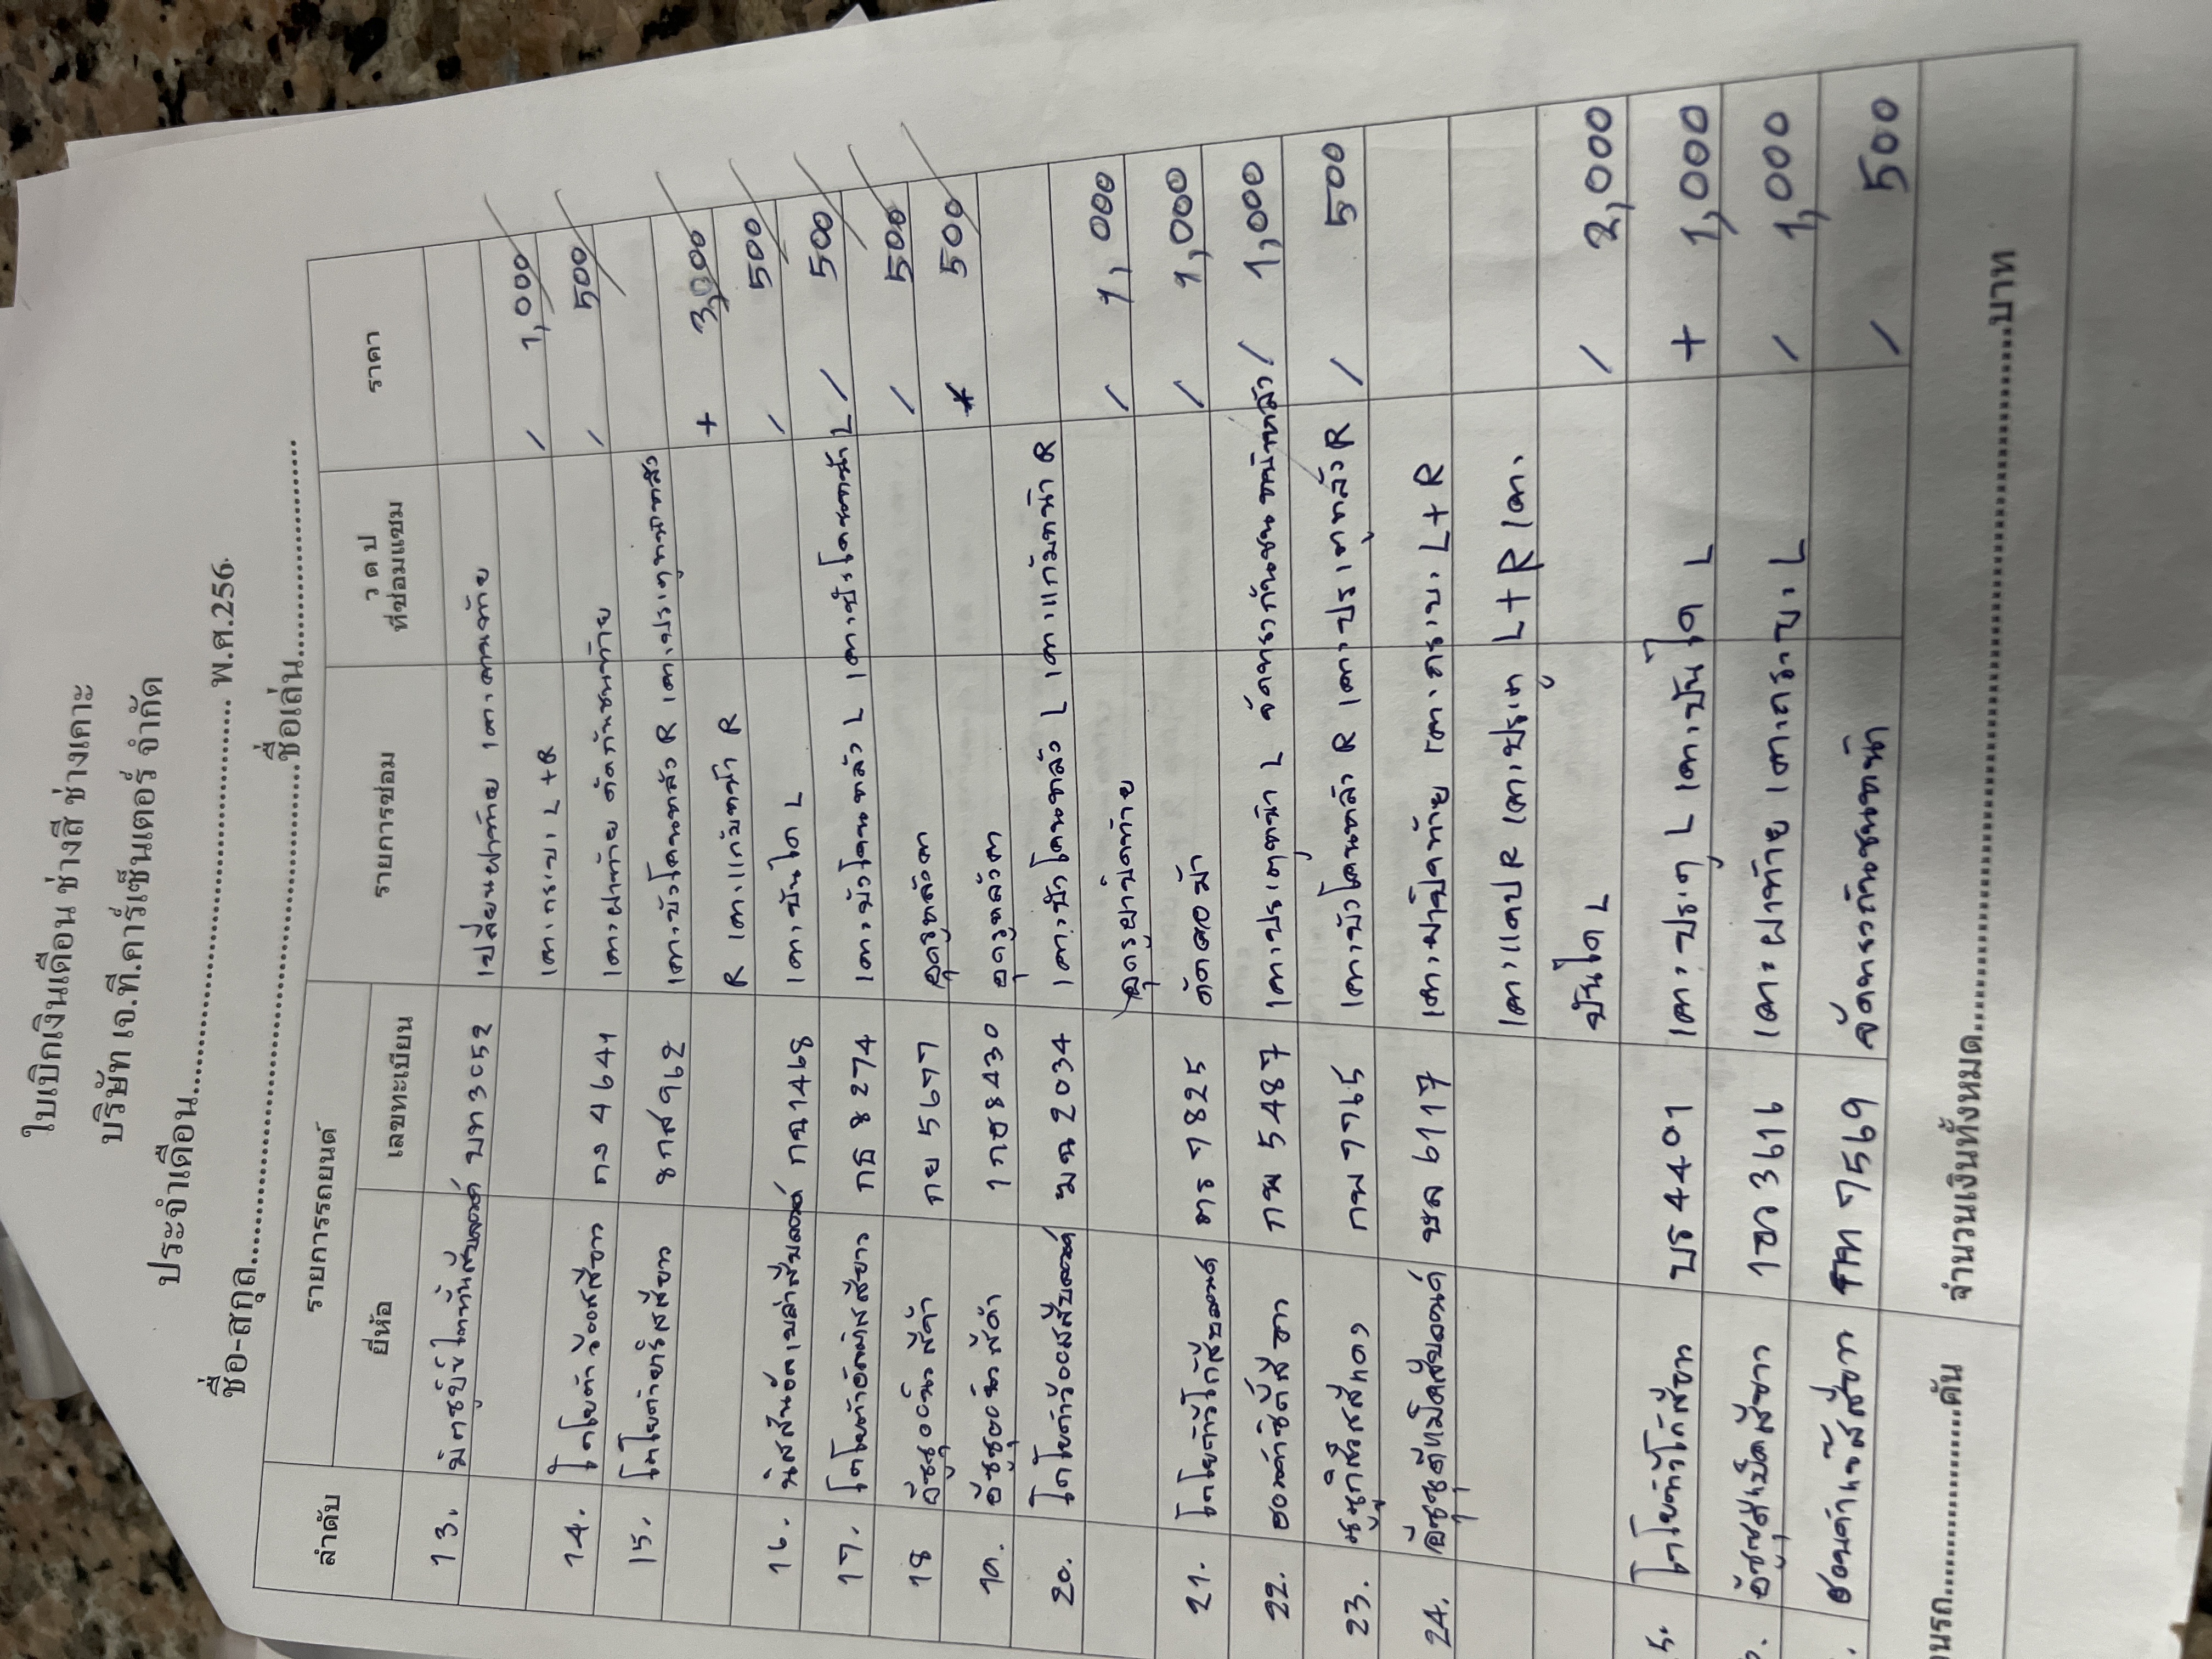 ใบเบิกเงินเดือน ช่างสี ช่างเคาะ
บริษัท เจ.ที.คาร์เซ็นเตอร์ จำกัด
ประจำเดือน.................... พ.ศ.256.
ชื่อ-สกุล....................ชื่อเล่น....................
ลำดับ รายการรถยนต์ รายการซ่อม ว ด ป ที่ซ่อมแซม ราคา
ยี่ห้อ เลขทะเบียน
13. บท 3052 เปลี่ยนฝาท้าย เคาะคานท้าย
เคาะกระบะ L+R / 1,000
14. โตโยต้าวีออสสีขาว กง 4641 เคาะฝาท้าย ดัดกันชนท้าย / 500
15. โตโยต้ายาริสสีขาว 8กส 962 เคาะบังโคลนหลัง R เคาะประตูหน้าหลัง
R เคาะแก้มหน้า R + 3,000
16. กฉ 1468 เคาะบันได L / 500
17. กธ 8274 เคาะบังโคลนหลัง L เคาะบังโคลนหน้า L / 500
18 อีซูซุ กย 5677 / 500
19. อีซูซุ 1กช 8430 * 500
20. โตโยต้าวีออสสีบรอนด์ ฆฉ 2034 เคาะบังโคลนหลัง L เคาะแก้มหน้า R
/ 1,000
21. โตโยต้าวีโก้สีบรอนด์ ตร 7825 / 1,000
22. ฮอนด้าซิตี้สีเทา กพ 5487 เคาะประตูหน้า L / 1,000
23. ซูซูกิสวิฟสีแดง กพ 7765 เคาะบังโคลนหลัง R เคาะประตูหลัง R / 500
24. ขล 6117 เคาะฝาปิดท้าย เคาะกระบะ L+R
เคาะแคป R เคาะประตู L+R เคาะ
บันได L / 2,000
5. โตโยต้าวีโก้สีเทา บร 4401 เคาะประตู L เคาะบันได L + 1,000
. 1ฒว 3616 เคาะฝาท้าย เคาะกระบะ L / 1,000
. ฮอนด้าแจ๊สสีเทา 7569 / 500
นรถ....................คัน จำนวนเงินทั้งหมด....................บาท